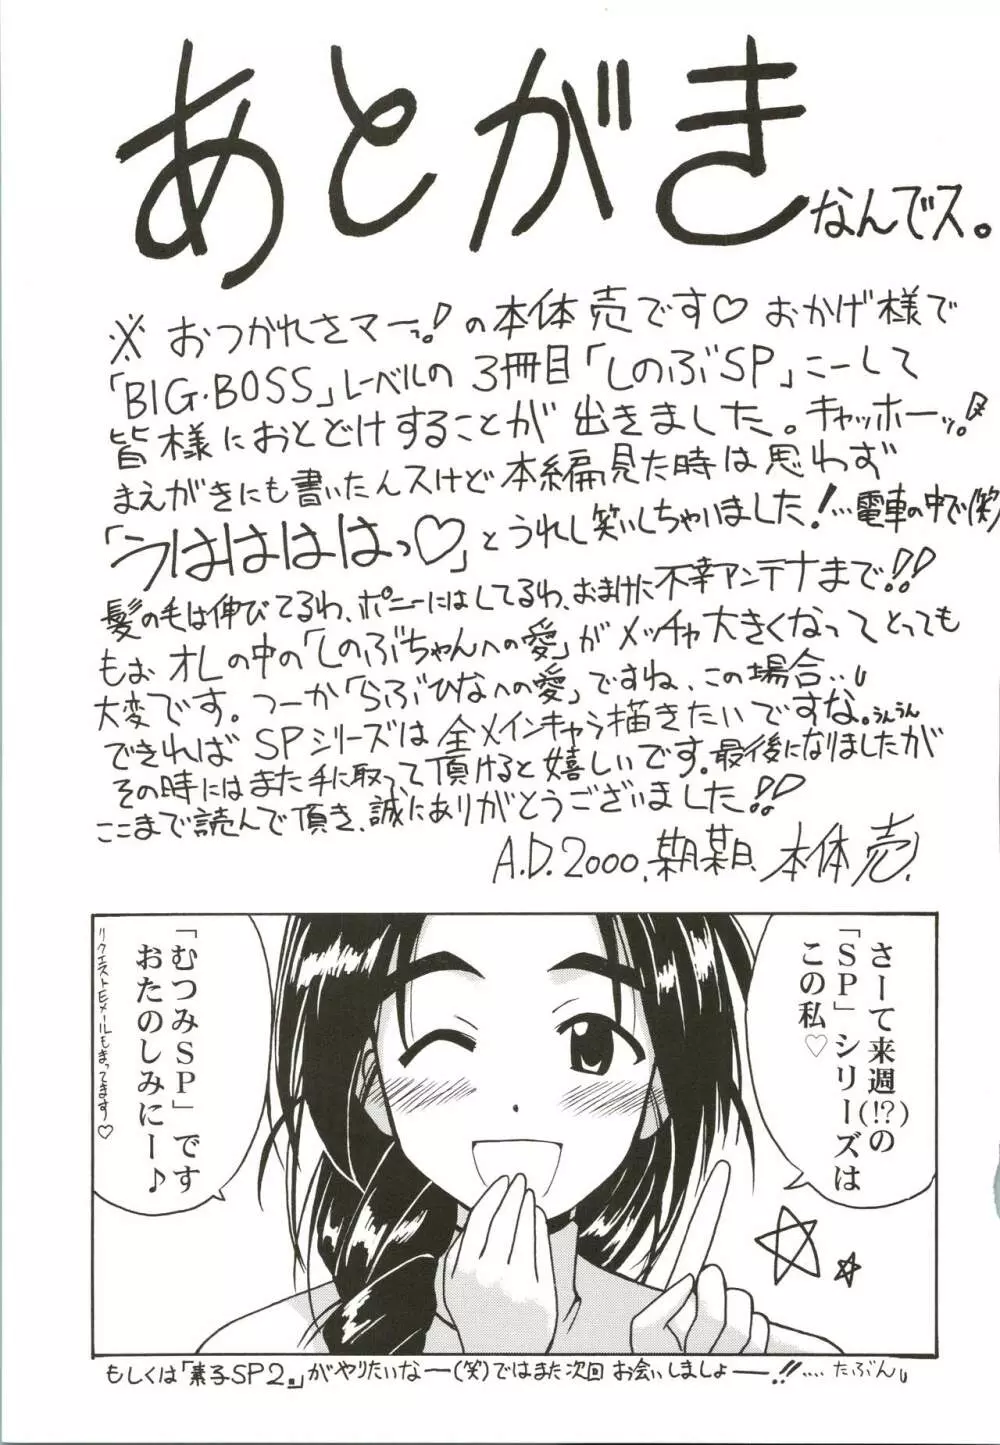 あとがき
なんでス。
※おつかれさマーっ!の本体売です♡おかげ様で
「BIG・BOSS」レーベルの3冊目「しのぶSP」こーして
皆様におとどけすることが出きました。キャッホーッ!
まえがきにも書いたんスけど本編見た時は思わず
「うはははは っ♡」とうれし笑いしちゃいました!…電車の中で(笑)
髪の毛は伸びてるわ、ポニーにはしてるわ、おまけに不幸アンテナまで!!
もおオレの中の「しのぶちゃんへの愛」がメッチャ大きくなってとっても
大変です。つーか「らぶひなへの愛」ですね、この場合…。
できればSPシリーズは全メインキャラ描きたいですな。うんうん
その時にはまた手に取って頂けると嬉しいです。最後になりましたが
ここまで読んで頂き、誠にありがとうございました!!
A.D.2000.某月某日.本体売.
さーて来週(!?)の
「SP」シリーズは
この私♡
「むつみSP」です
おたのしみにー♪
リクエストEメールもまってます♡
もしくは「素子SP2」がやりたいなー(笑)ではまた次回お会いしましょーー!!……たぶん。